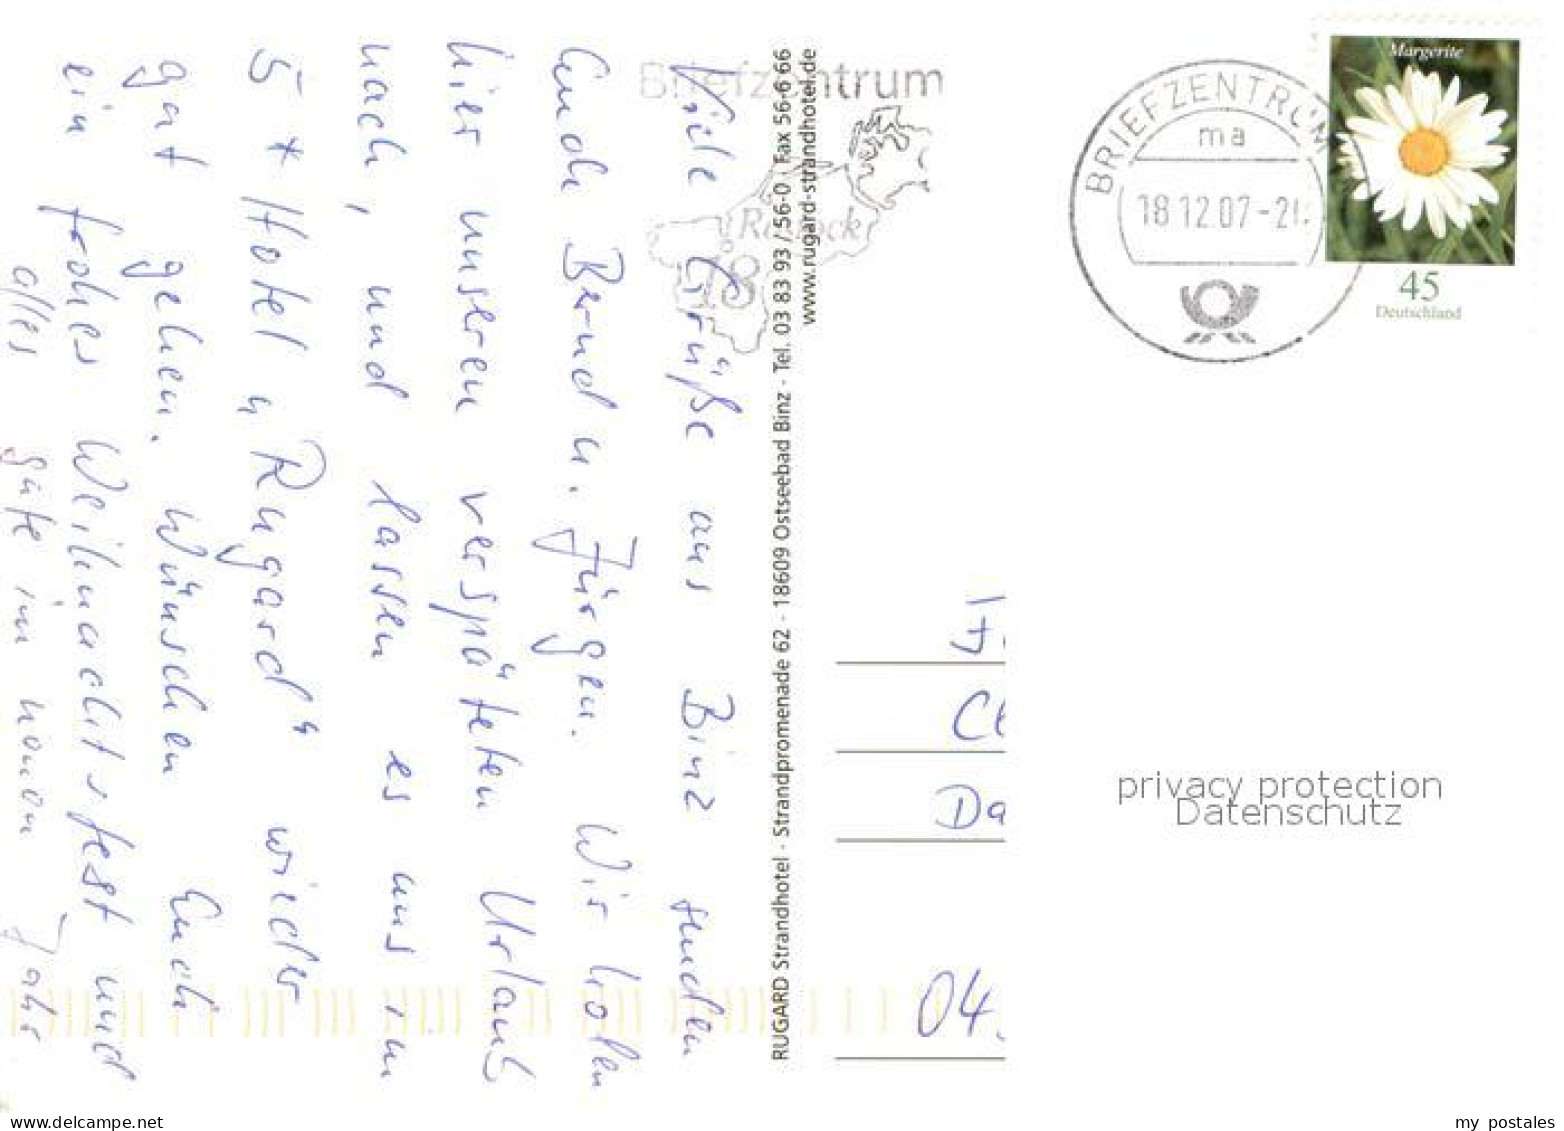 Viele Grüße aus Binz senden
Euch Bernd u. Jürgen. Wir holen
hier unseren verspäteten Urlaub
nach, und lassen es uns im
5 * Hotel „Rugard“ wieder
gut gehen. Wünschen Euch
ein frohes Weihnachtsfest und
alles gute im neuen Jahr
RUGARD Strandhotel · Strandpromenade 62 · 18609 Ostseebad Binz · Tel. 03 83 93 / 56-0 · Fax 56-6 66
www.rugard-strandhotel.de
Briefzentrum
Rostock
18
BRIEFZENTRUM
ma
18.12.07-21
Margerite
45
Deutschland
Da
04.
privacy protection
Datenschutz
www.delcampe.net
my postales